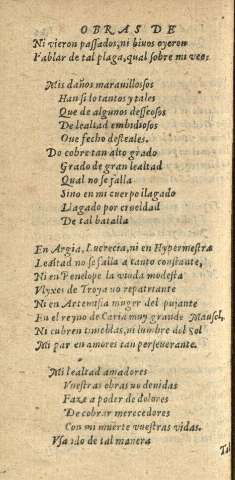 OBRAS DE
Ni vieron passados, ni biuos oyeron
Fablar de tal plaga, qual sobre mi veo:
Mis daños marauillosos
Han si lo tantos y tales
Que de algunos desseosos
De lealtad embidiosos
Que fecho desleales.
Do cobre tan alto grado
Grado de gran lealtad
Qual no se falla
Sino en mi cuerpo llagado
Llagado por crueldad
De tal batalla
En Argia, Lucrecia, ni en Hypermestra
Lealtad no se falla a tanto constante,
Ni en Penelope la viuda modesta
Vlyxes de Troya no repatriante
Ni en Artemisia muger del pujante
En el reyno de Caria muy grande Mausol,
Ni cubren tinieblas, ni lumbre del Sol
Mi par en amores tan perseuerante.
Mi lealtad amadores
Vuestras obras no denidas
Faze a poder de dolores
Decobrar merecedores
Con mi muerte vuestras vidas.
Vsa do de tal manera
Tal